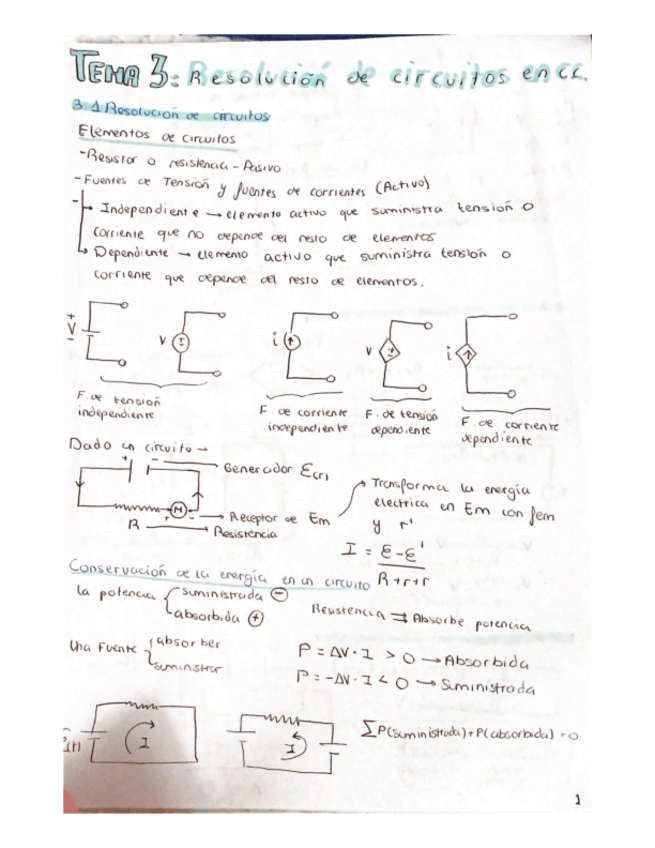 TEMA 3: Resolución de circuitos en CC.
3.1 Resolución de circuitos
Elementos de circuitos
-Resistor o resistencia - Pasivo
-Fuentes de Tensión y fuentes de corrientes (Activo)
- Independiente → elemento activo que suministra tensión o
corriente que no depende del resto de elementos
Dependiente → elemento activo que suministra tensión o
corriente que depende del resto de elementos.
+ V -
V
i
V
i
F. de tensión
independiente
F. de corriente
independiente
F. de tensión
dependiente
F. de corriente
dependiente
Dado un circuito →
+ -
Generador ε(r)
M
+ -
Receptor de Em
R
Resistencia
Transforma la energía
electrica en Em con fem
y r'
I = ε-ε'
R+r+r
Conservación de la energía en un circuito
la potencia { suministrada ⊖
absorbida ⊕
Resistencia ⇉ Absorbe potencia
Una Fuente { absorber
suministrar
P = ΔV·I > 0 → Absorbida
P = -ΔV·I < 0 → Suministrada
I
I
ΣP(suministrada)+P(absorbida) = 0
1